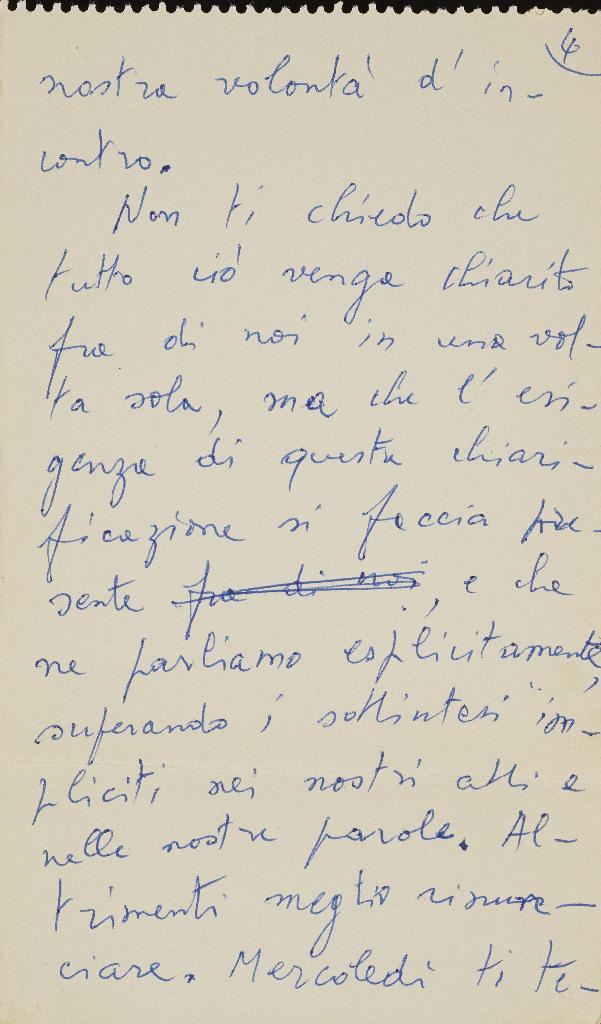 4
nostra volontà d'in-
contro.
Non ti chiedo che
tutto ciò venga chiarito
fra di noi in una vol-
ta sola, ma che l'esi-
genza di questa chiari-
ficazione si faccia pre-
sente fra di noi, e che
ne parliamo esplicitamente,
superando i sottintesi im-
pliciti nei nostri atti e
nelle nostre parole. Al-
trimenti meglio rinun-
ciare. Mercoledì ti te-